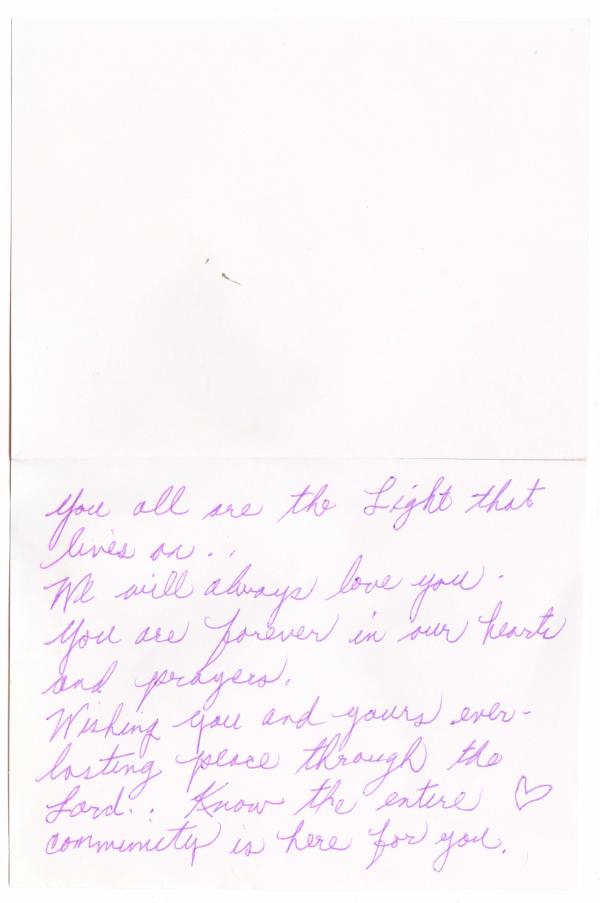 You all are the Light that
lives on..
We will always love you.
You are forever in our hearts
and prayers.
Wishing you and yours ever-
lasting peace through the
Lord.. Know the entire ♡
community is here for you.